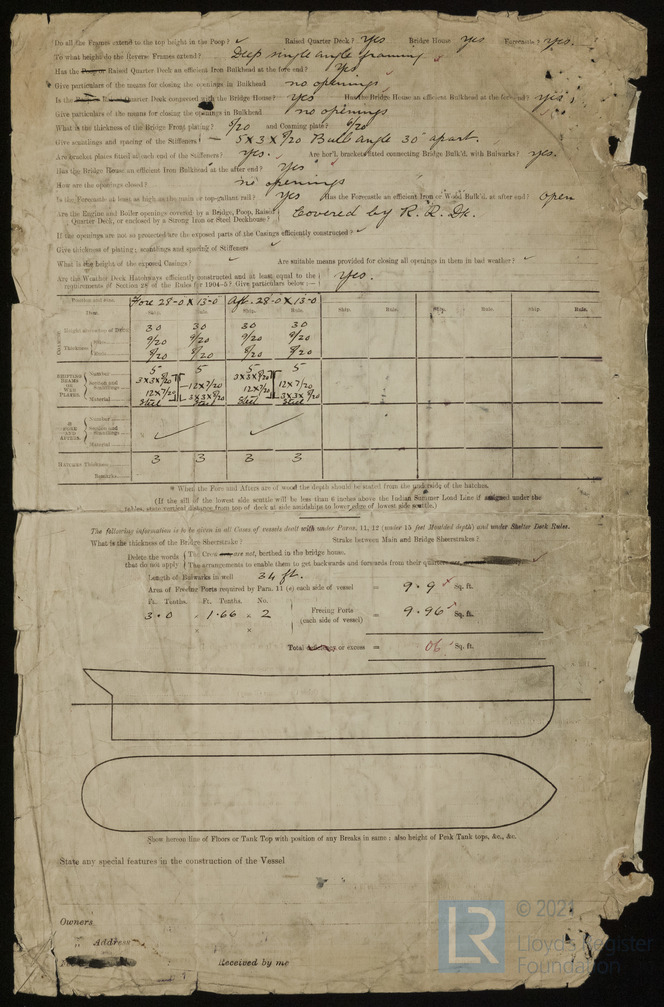 Do all the Frames extend to the top height in the Poop? ✓ Raised Quarter Deck? Yes Bridge House Yes Forecastle? Yes.
To what height do the Reverse Frames extend? Deep single angle framing
Has the Raised Quarter Deck an efficient Iron Bulkhead at the fore end? Yes
Give particulars of the means for closing the openings in Bulkhead no openings
Is the Raised Quarter Deck connected with the Bridge House? Yes Has the Bridge House an efficient Bulkhead at the fore end? Yes
Give particulars of the means for closing the openings in Bulkhead no openings
What is the thickness of the Bridge Front plating? 8/20 and Coaming plate?
Give scantlings and spacing of the Stiffeners 5 X 3 X 8/20 Bulb angle 30" apart.
Are bracket plates fitted at each end of the Stiffeners? Yes. Are hor'l. brackets fitted connecting Bridge Bulk'd. with Bulwarks? Yes.
Has the Bridge House an efficient Iron Bulkhead at the after end? Yes
How are the openings closed? no openings
Is the Forecastle at least as high as the main or top-gallant rail? Yes Has the Forecastle an efficient Iron or Wood Bulk'd. at after end? open
Are the Engine and Boiler openings covered by a Bridge, Poop, Raised Quarter Deck, or enclosed by a Strong Iron or Steel Deckhouse? Covered by R. Q. Dk.
If the openings are not so protected are the exposed parts of the Casings efficiently constructed?
Give thickness of plating; scantlings and spacing of Stiffeners
What is the height of the exposed Casings? Are suitable means provided for closing all openings in them in bad weather?
Are the Weather Deck Hatchways efficiently constructed and at least equal to the requirements of Section 28 of the Rules for 1904-5? Give particulars below:— Yes.
Position and Size. Fore 28-0 X 13-0 Aft. 28-0 X 13-0
Item. Ship. Rule. Ship. Rule. Ship. Rule. Ship. Rule. Ship. Rule.
Height above top of Deck 30 30 30 30
Thickness Sides 9/20 9/20 9/20 9/20
Ends 8/20 8/20 8/20 8/20
SHIFTING BEAMS OR WEB PLATES. Number 5 5 5 5
Section and Scantlings 3 X 3 X 8/20 12 X 7/20 3 X 3 X 8/20 12 X 7/20
12 X 7/20 3 X 3 X 8/20 12 X 7/20 3 X 3 X 8/20
Material Steel Steel Steel Steel
* FORE AND AFTERS. Number
Section and Scantlings
Material
HATCHES Thickness 3 3 3 3
Remarks
* When the Fore and Afters are of wood the depth should be stated from the underside of the hatches.
(If the sill of the lowest side scuttle will be less than 6 inches above the Indian Summer Load Line if assigned under the
tables, state vertical distance from top of deck at side amidships to lower edge of lowest side scuttle.)
The following information is to be given in all Cases of vessels dealt with under Paras. 11, 12 (under 15 feet Moulded depth) and under Shelter Deck Rules.
What is the thickness of the Bridge Sheerstrake? Strake between Main and Bridge Sheerstrakes?
Delete the words that do not apply { The Crew are not, berthed in the bridge house.
The arrangements to enable them to get backwards and forwards from their quarters are
Length of Bulwarks in well 34 ft.
Area of Freeing Ports required by Para. 11 (e) each side of vessel = 9.9 Sq. ft.
Ft. Tenths. Ft. Tenths. No.
3.0 × 1.66 × 2 Freeing Ports (each side of vessel) = 9.96 Sq. ft.
× ×
Total deficiency or excess = 06 Sq. ft.
Show hereon line of Floors or Tank Top with position of any Breaks in same; also height of Peak Tank tops, &c., &c.
State any special features in the construction of the Vessel
Owners
" Address
Received by me
LR © 2021
Lloyd's Register
Foundation